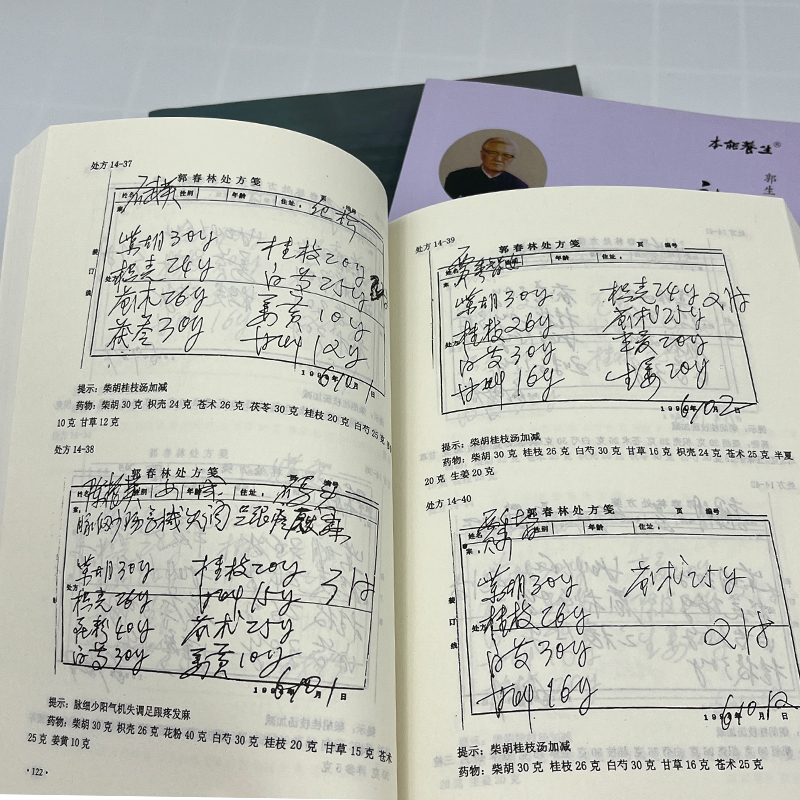 处方 14-37
郭春林处方笺
姓名 性别 年龄 住址: 页 编号
柴胡30g 桂枝20g
枳壳24g 白芍25g
苍术26g 姜黄10g
茯苓30g 甘草12g
装订线
处方
1996年10月1日
提示: 柴胡桂枝汤加减
药物: 柴胡 30 克 枳壳 24 克 苍术 26 克 茯苓 30 克 桂枝 20 克 白芍 25 克
10 克 甘草 12 克
处方 14-38
郭春林处方笺
姓名 性别 年龄 住址: 页 编号
脉细少阳气机失调 足跟疼发麻
柴胡30g 桂枝20g
枳壳26g 甘草15g 3付
花粉40g 苍术25g
白芍30g 姜黄10g
装订线
处方
1996年10月1日
提示: 脉细少阳气机失调足跟疼发麻
药物: 柴胡 30 克 枳壳 26 克 花粉 40 克 白芍 30 克 桂枝 20 克 甘草 15 克 苍术
25 克 姜黄 10 克
·122·
本能養生®
郭生
处方 14-39
郭春林处方笺
姓名 年龄 住址: 页 编号
柴胡30g 枳壳24g
桂枝26g 苍术25g 2付
白芍30g 半夏20g
甘草16g 生姜20g
装订线
处方
1996年10月2日
提示: 柴胡桂枝汤加减
药物: 柴胡 30 克 桂枝 26 克 白芍 30 克 甘草 16 克 枳壳 24 克 苍术 25 克 半夏
20 克 生姜 20 克
处方 14-40
郭春林处方笺
姓名 性别 年龄 住址: 页 编号
柴胡30g 苍术25g
桂枝26g
白芍30g 2付
甘草16g
装订线
处方
1996年10月12日
提示: 柴胡桂枝汤加减
药物: 柴胡 30 克 桂枝 26 克 白芍 30 克 甘草 16 克 苍术 25 克